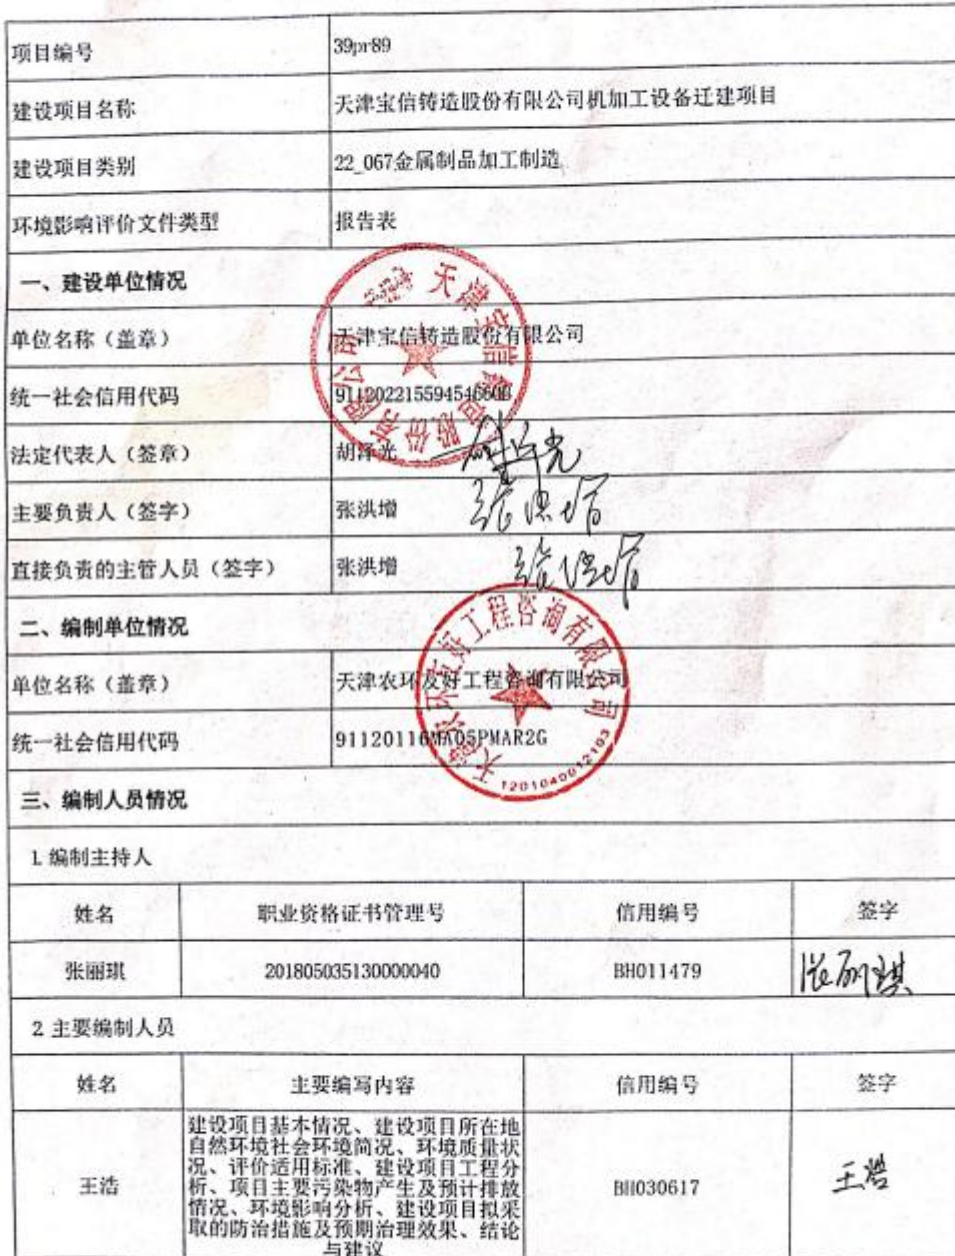 项目编号 39pr89
建设项目名称 天津宝信铸造股份有限公司机加工设备迁建项目
建设项目类别 22_067金属制品加工制造
环境影响评价文件类型 报告表
一、建设单位情况
单位名称（盖章） 天津宝信铸造股份有限公司
统一社会信用代码
法定代表人（签章） 胡泽光
主要负责人（签字） 张洪增 张洪增
直接负责的主管人员（签字） 张洪增 张洪增
二、编制单位情况
单位名称（盖章） 天津农环友好工程咨询有限公司
统一社会信用代码 91120116MA05PMAR2G
三、编制人员情况
1.编制主持人
姓名 职业资格证书管理号 信用编号 签字
张丽琪 201805035130000040 BH011479 张丽琪
2.主要编制人员
姓名 主要编写内容 信用编号 签字
建设项目基本情况、建设项目所在地
自然环境社会环境简况、环境质量状
况、评价适用标准、建设项目工程分
王浩 析、项目主要污染物产生及预计排放 BH030617 王浩
情况、环境影响分析、建设项目拟采
取的防治措施及预期治理效果、结论
与建议